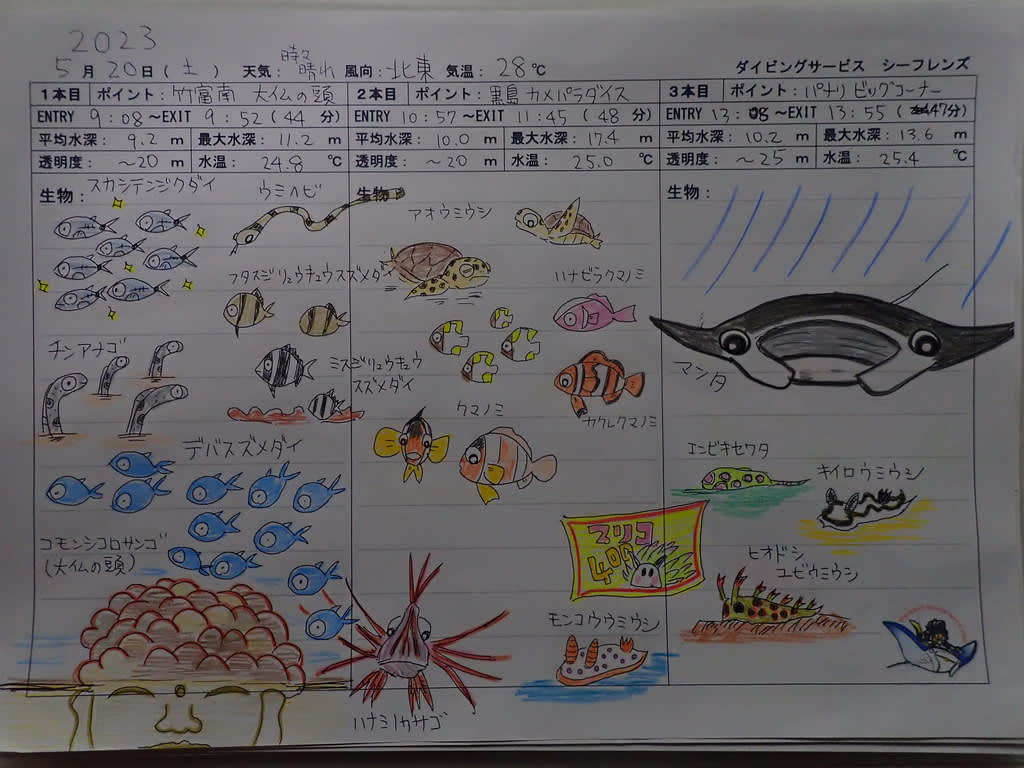 2023
5月20日(土) 天気:時々晴れ 風向:北東 気温:28℃ ダイビングサービス シーフレンズ
1本目 ポイント:竹富南 大仏の頭
ENTRY 9:08〜EXIT 9:52(44分)
平均水深: 9.2 m 最大水深: 11.2 m
透明度: 〜20 m 水温: 24.8 ℃
生物:
スカシテンジクダイ
ウミヘビ
フタスジリュウキュウスズメダイ
チンアナゴ
ミスジリュウキュウ
スズメダイ
デバスズメダイ
コモンシコロサンゴ
(大仏の頭)
2本目 ポイント:黒島 カメパラダイス
ENTRY 10:57〜EXIT 11:45(48分)
平均水深: 10.0 m 最大水深: 17.4 m
透明度: 〜20 m 水温: 25.0 ℃
生物:
アオウミウシ
ハナビラクマノミ
クマノミ
カクレクマノミ
マリコ
400
モンコウウミウシ
ハナミノカサゴ
3本目 ポイント:パナリ ビッグコーナー
ENTRY 13:08〜EXIT 13:55(47分)
平均水深: 10.2 m 最大水深: 13.6 m
透明度: 〜25 m 水温: 25.4 ℃
生物:
マンタ
エンビキセワタ
キイロウミウシ
ヒオドシ
ユビウミウシ